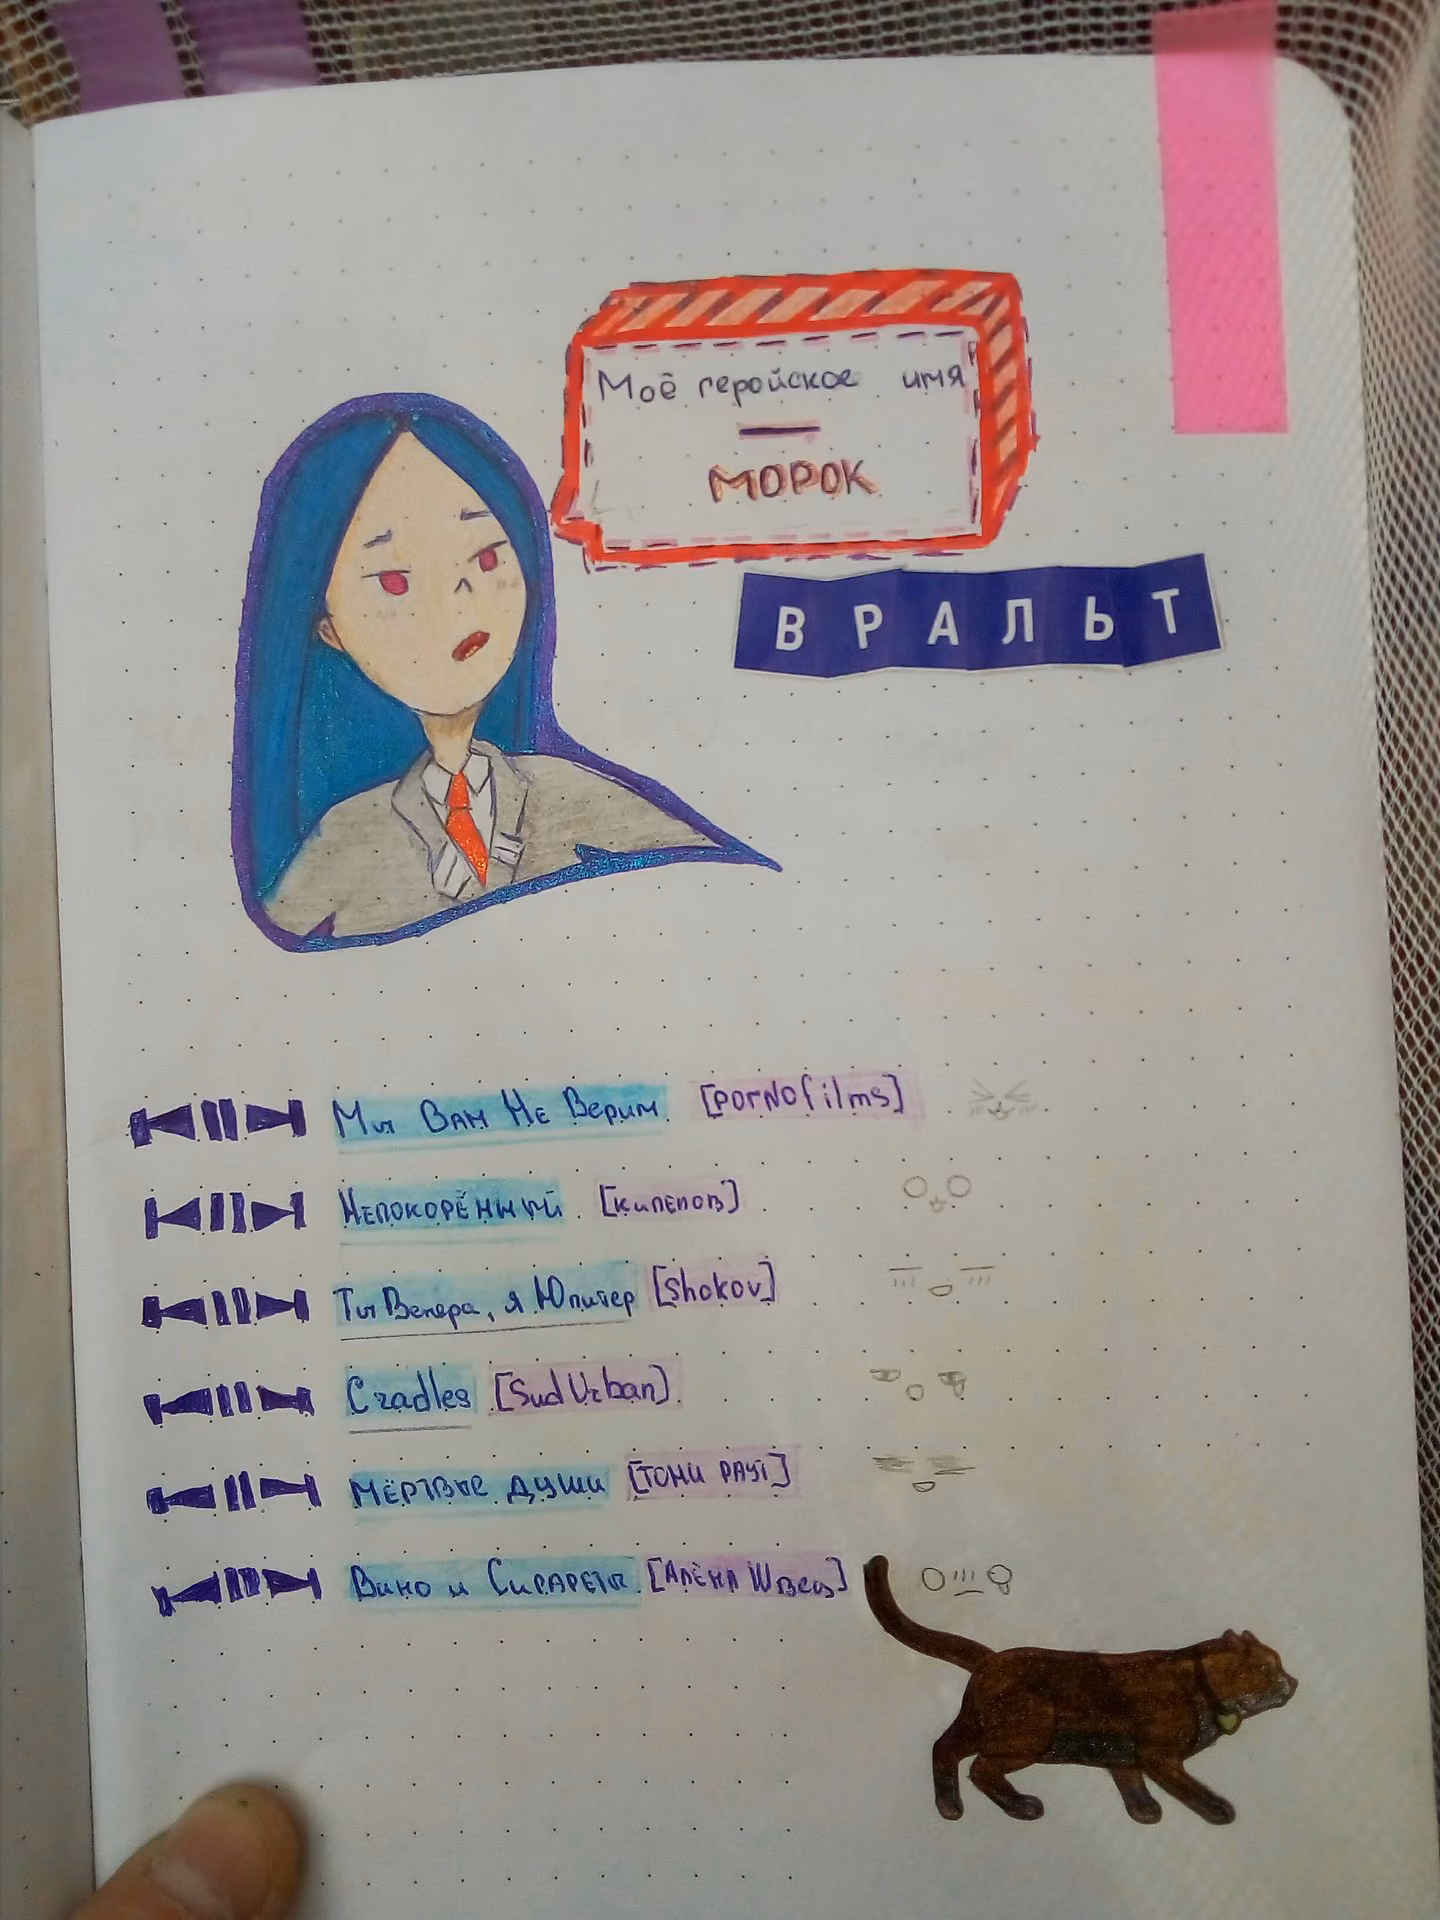 Моё геройское имя
—
МОРОК
ВРАЛЬТ
Мы Вам Не Верим [pornofilms]
Непокорённый [кипелов]
Ты Венера, я Юпитер [Shokov]
Cradles [Sud Urban]
Мёртвые души [Тони Раут]
Вино и Сигареты [Алёна Швец]